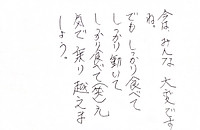 今はみんな大変です
ね。
でもしっかり食べて
しっかり動いて
しっかり食べて(笑)元
気で乗り越えま
しょう。